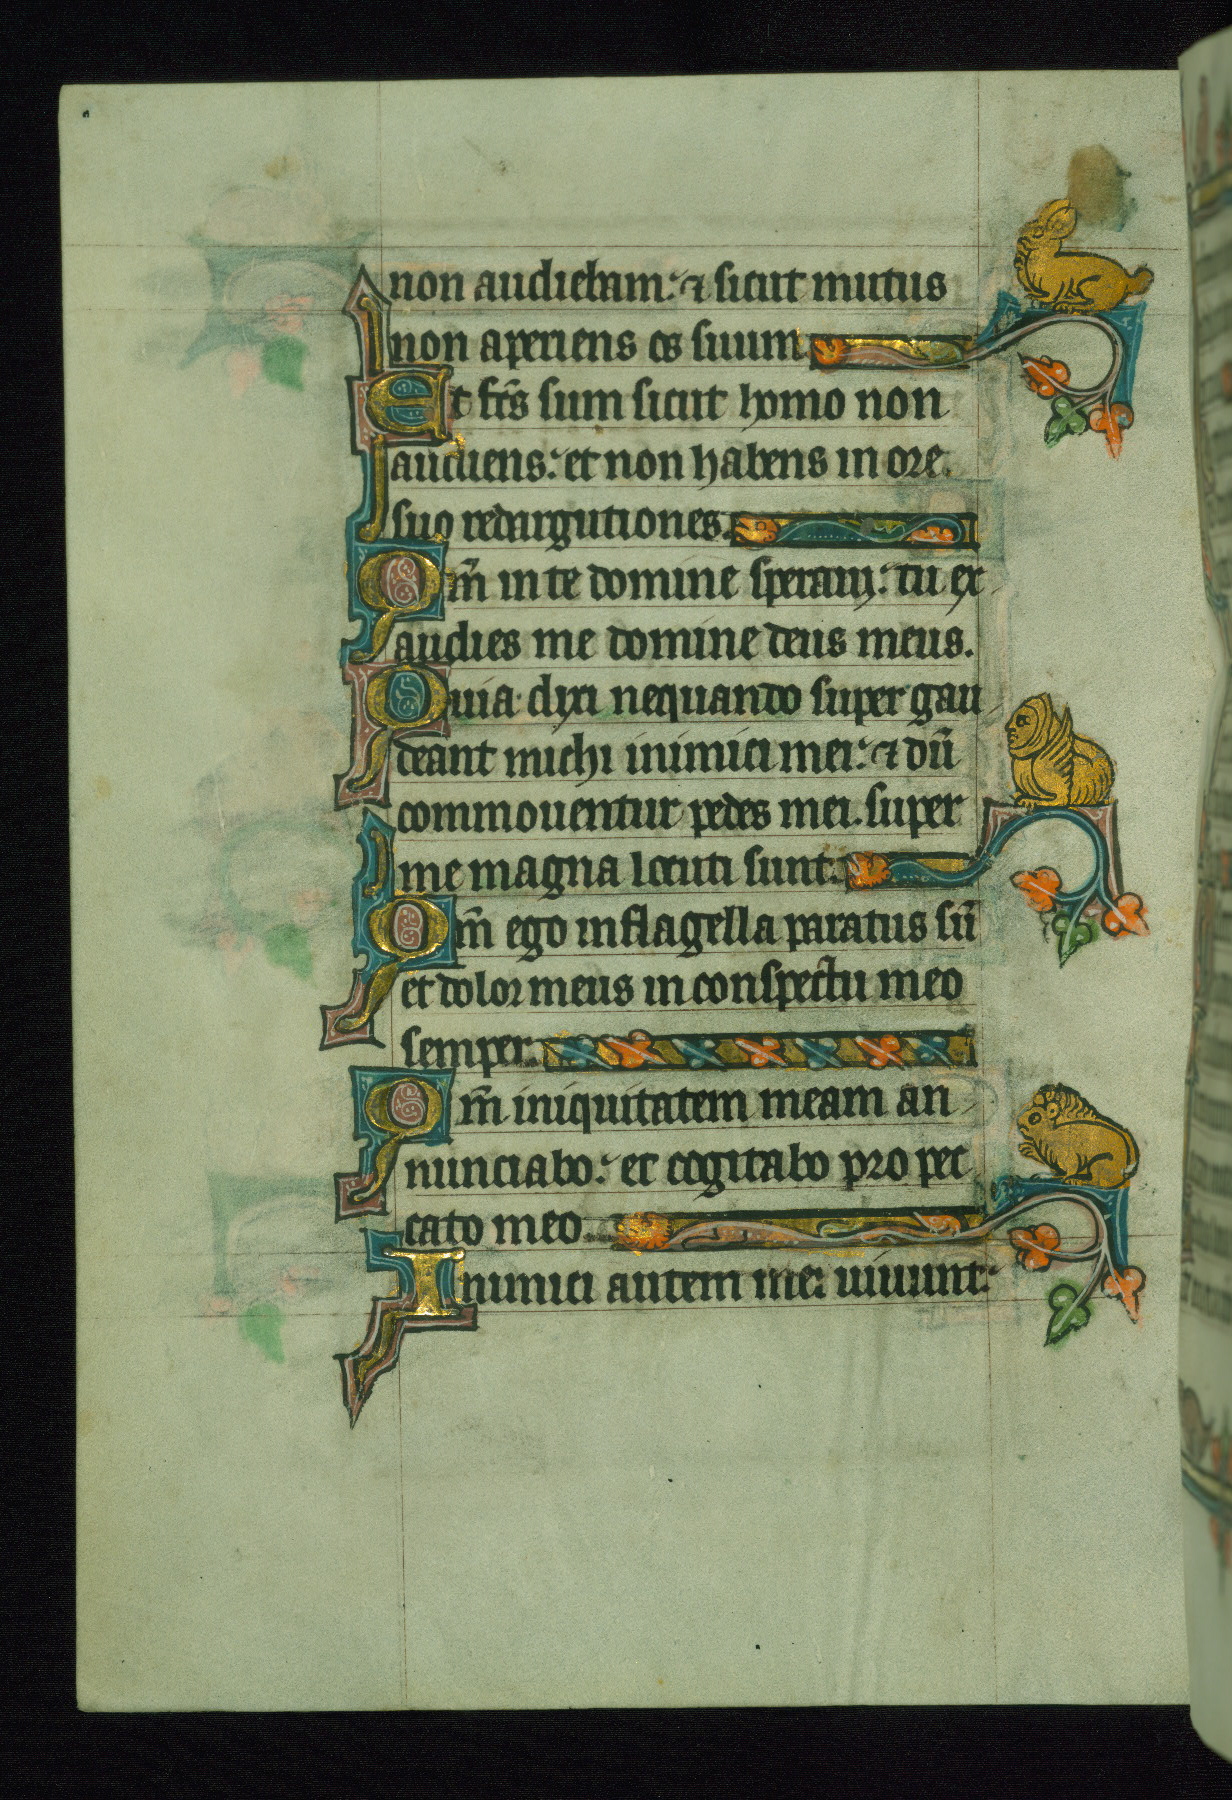 non audiebam: ⁊ sicut mutus
non aperiens os suum.
Et fc̃s sum sicut homo non
audiens: et non habens in ore
suo redargutiones.
Qm̃ in te domine speraui: tu ex
audies me domine deus meus.
Quia dixi nequando super gau
deant michi inimici mei: ⁊ dũ
commouentur pedes mei. super
me magna locuti sunt.
Qm̃ ego in flagella paratus sũ
et dolor meus in conspectu meo
semper.
Qm̃ iniquitatem meam an
nunciabo: et cogitabo pro pec
cato meo.
Inimici autem mei uiuunt: